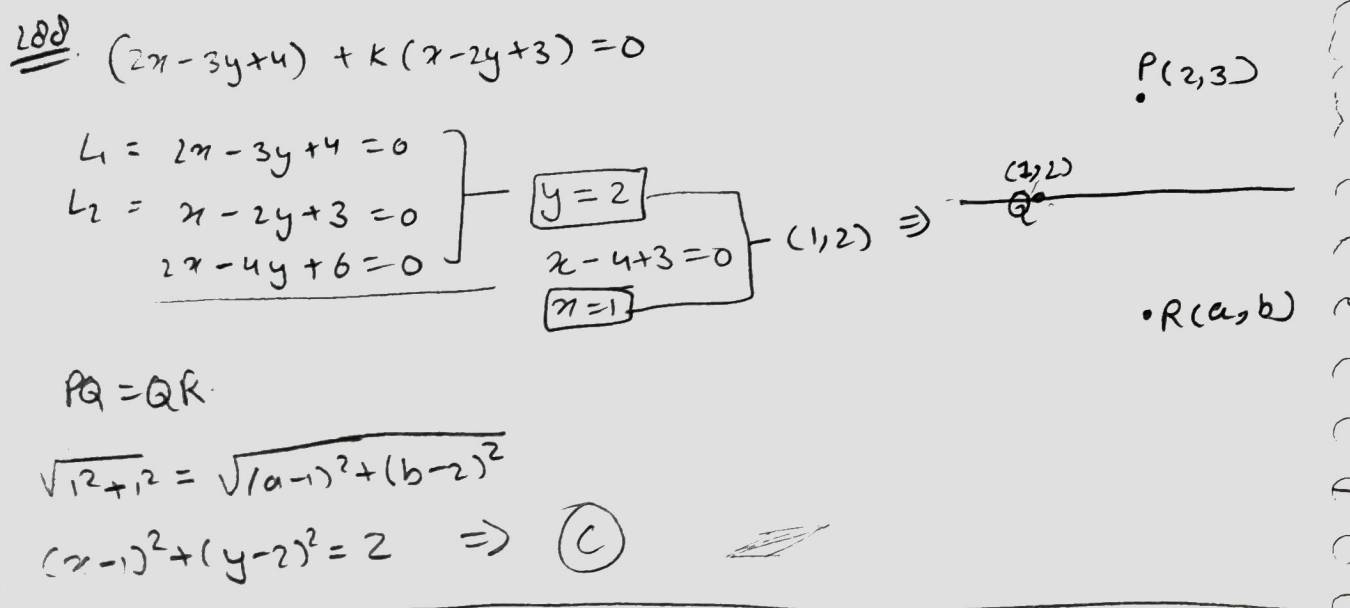 288. (2x-3y+4) + K(x-2y+3) = 0
P(2,3)
L1 = 2x-3y+4 = 0
L2 = x-2y+3 = 0
2x-4y+6 = 0
y = 2
x-4+3 = 0
x = 1
(1,2) ⇒
(1,2)
Q
R(a,b)
PQ = QR.
√1²+1² = √(a-1)²+(b-2)²
(x-1)²+(y-2)² = 2 ⇒ C